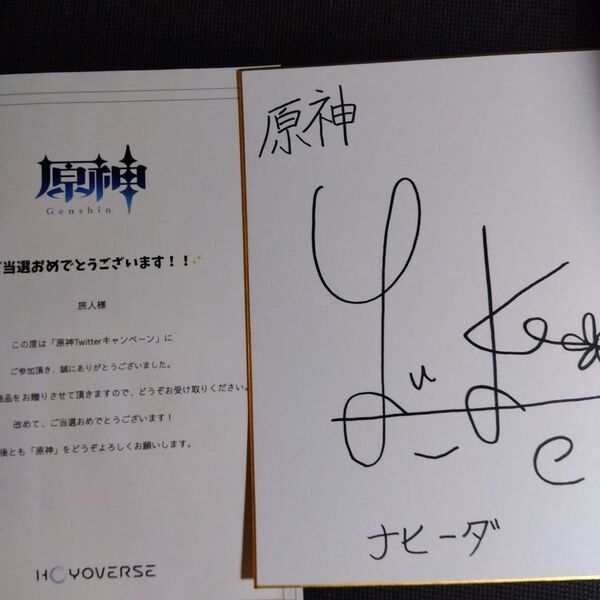 原神
Genshin
ご当選おめでとうございます！！
旅人様
この度は「原神Twitterキャンペーン」に
ご参加頂き、誠にありがとうございました。
商品をお贈りさせて頂きますので、どうぞお受け取りください。
改めて、ご当選おめでとうございます！
後とも「原神」をどうぞよろしくお願いします。
HOYOVERSE
原神
ナヒーダ